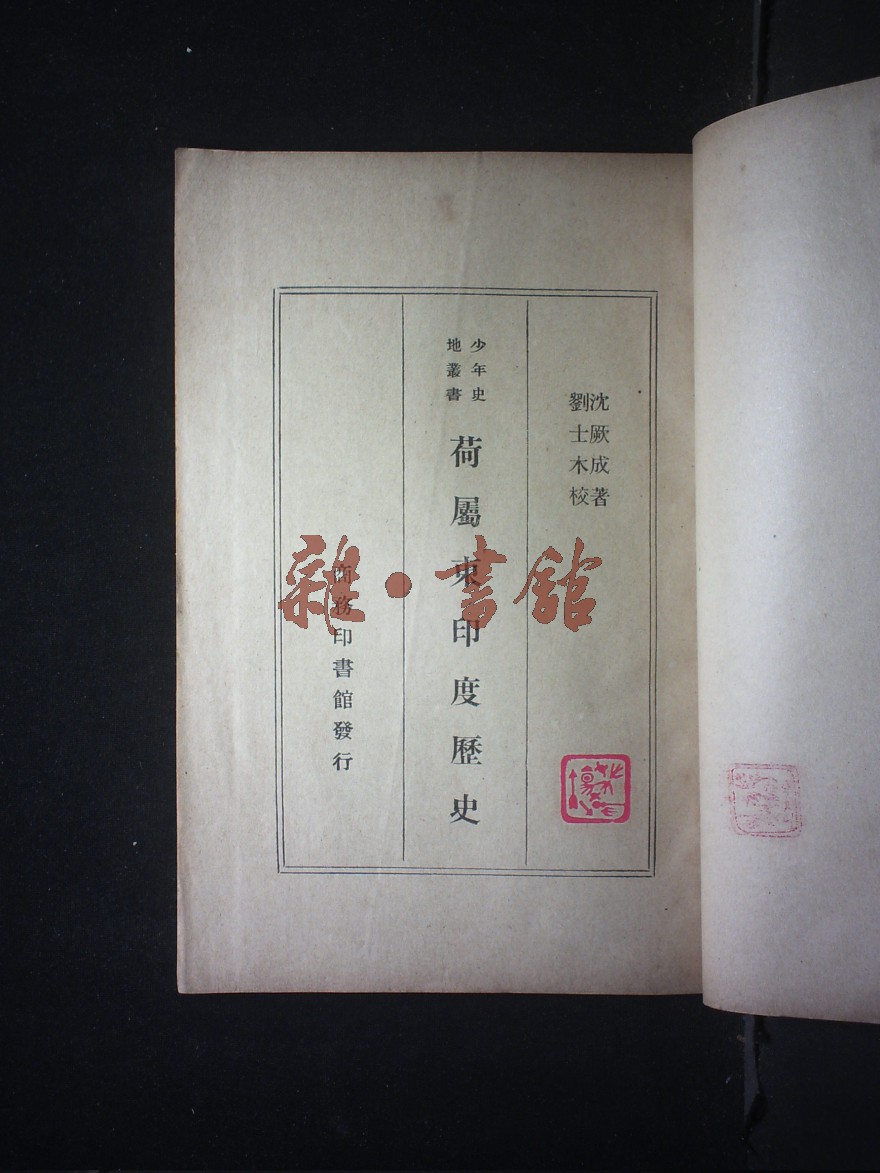 沈厥成著
劉士木校
少年史
地叢書
荷屬東印度歷史
商務印書館發行
雜·書館